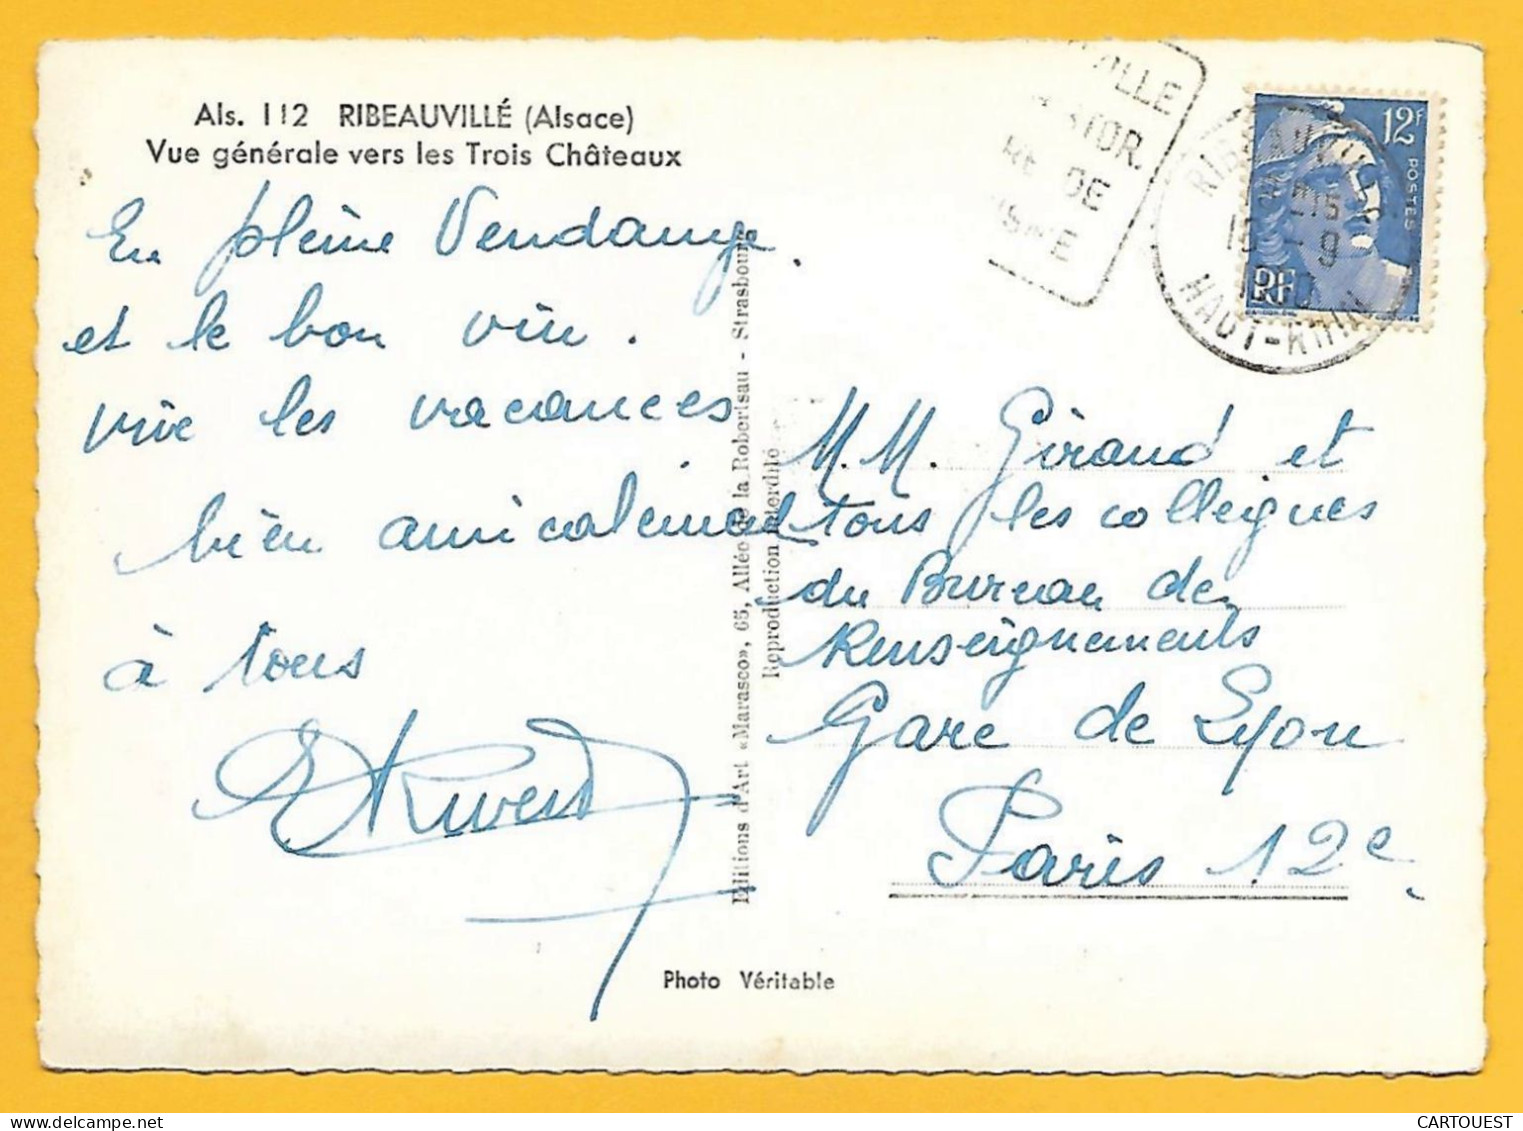 Als. 112 RIBEAUVILLÉ (Alsace)
Vue générale vers les Trois Châteaux
En pleine Vendange.
et le bon vin.
vive les vacances
bien amicalement
à tous
Editions d'Art «Marasco», 65, Allée de la Robertsau - Strasbourg
Reproduction interdite
Photo Véritable
12f
POSTES
RF
RIBEAUVILLÉ
15 - 9
HAUT-RHIN
M.M. Giraud et
tous les collègues
du Bureau de
Renseignements
Gare de Lyon
Paris 12e
CARTOUEST